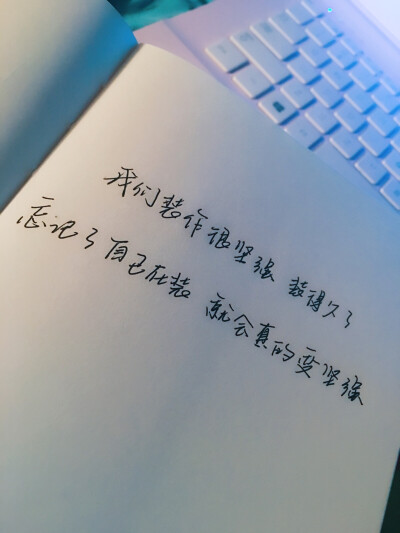 我们装作很坚强 装得久了
忘记了自己在装 就会真的变坚强